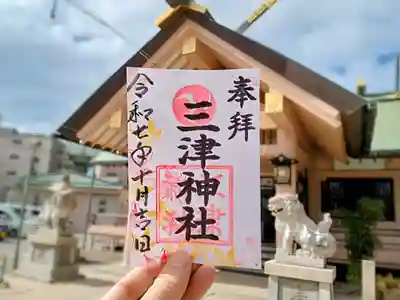 奉拝
三津神社
令和七年十月吉日